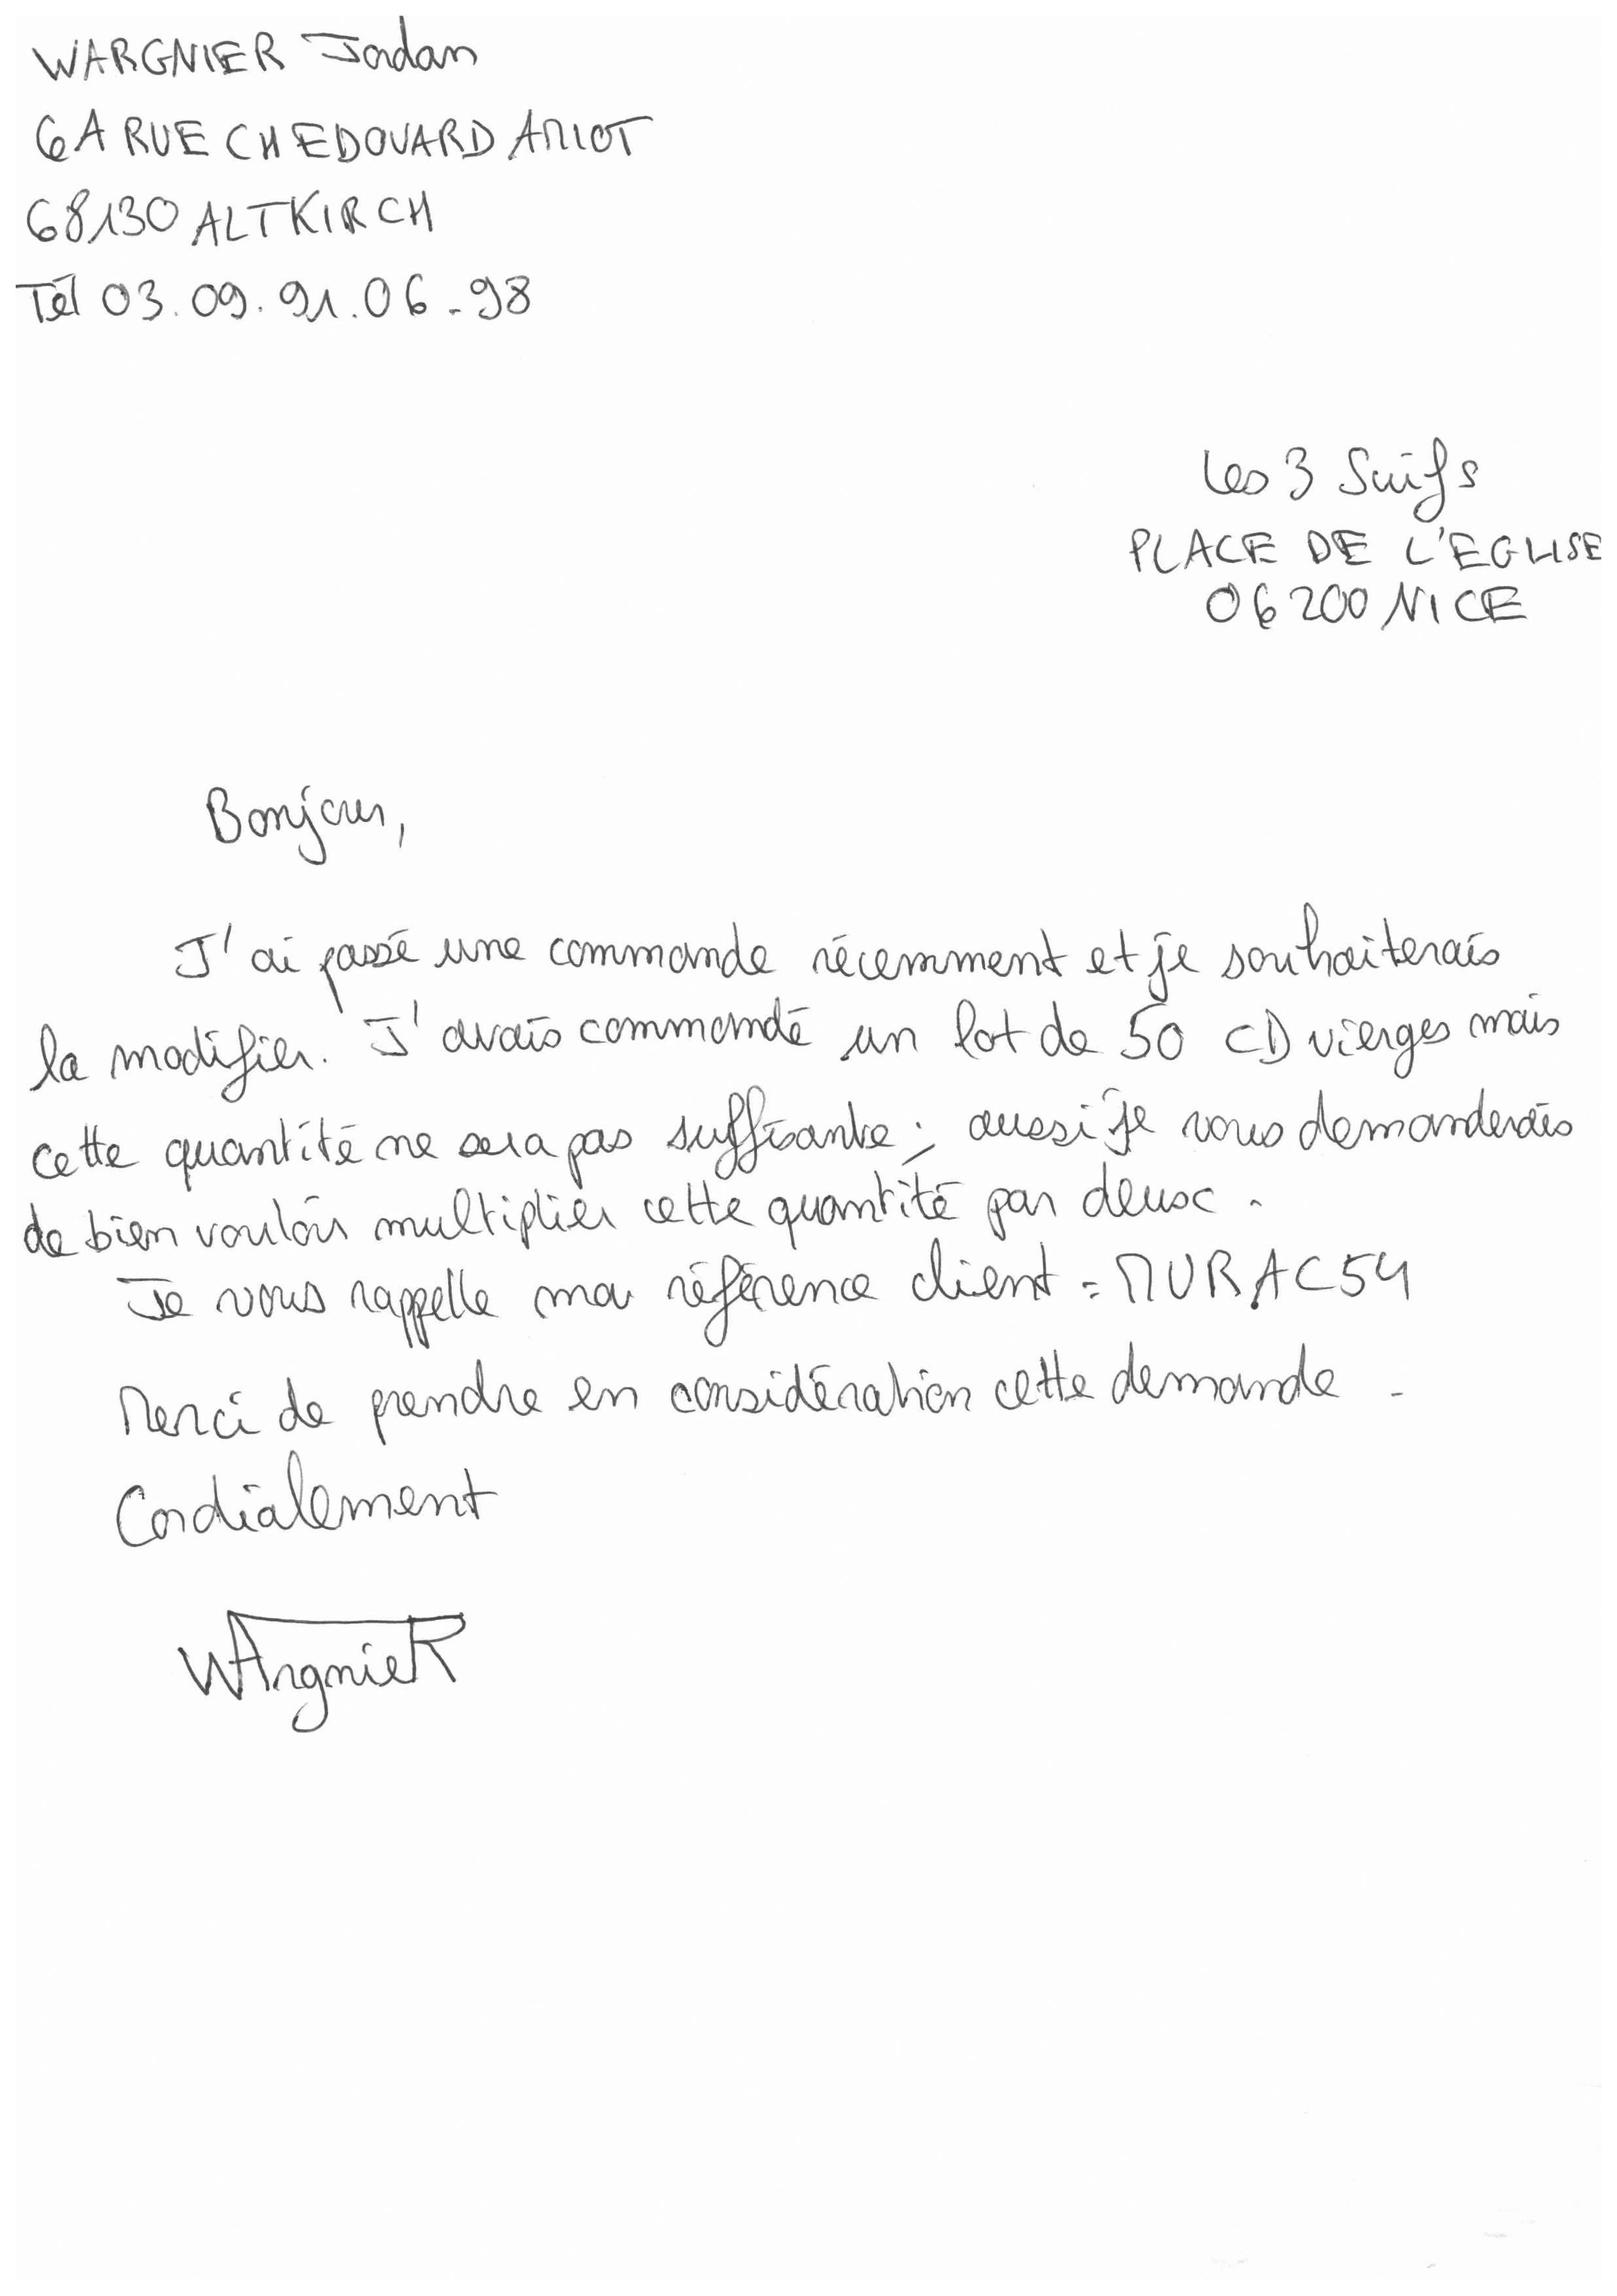 WARGNIER Jordan
6A RUE CH EDOUARD AMIOT
68130 ALTKIRCH
Tél 03.09.91.06-98
Les 3 Suifs
PLACE DE L'EGLISE
06200 NICE
Bonjour,
J'ai passé une commande récemment et je souhaiterais
la modifier. J'avais commandé un lot de 50 CD vierges mais
cette quantité ne sera pas suffisante ; aussi je vous demanderais
de bien vouloir multiplier cette quantité par deux.
Je vous rappelle ma référence client : MURAC54
Merci de prendre en considération cette demande.
Cordialement
WArgnieR